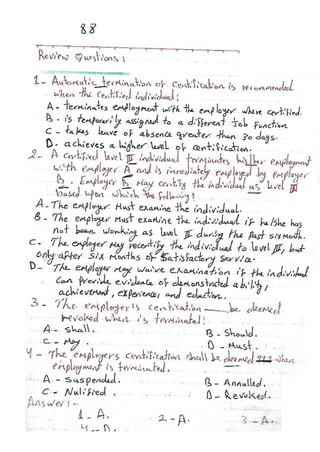 88
Review Questions:
1- Automatic termination of certification is recommended
when the certified individual:
A- terminates employment with the employer where certified.
B- is temporarily assigned to a different Job Function
C- takes leave of absence greater than 30 days.
D- achieves a higher level of certification.
2- A certified level III individual terminates his/her employment
with employer A and is immediately employed by employer
B. Employer B May certify the individual as level III
based upon which the following?
A- The employer Must examine the individual.
B- The employer Must examine the individual if he/she has
not been working as level III during the past six Month.
C- The employer May recertify the individual to level III, but
only after six Months of satisfactory service.
D- The employer May waive examination if the individual
Can provide evidence of demonstrated ability,
achievement, experience and eduction.
3- The employer's certification ___ be deemed
revoked when is terminated:
A- shall. B- Should.
C- May. D- Must.
4- The employers certification shall be deemed when
employment is terminated.
A- suspended. B- Annulled.
C- Nulified. D- Revoked.
Answer:-
1- A. 2- A. 3- A.
4- D.